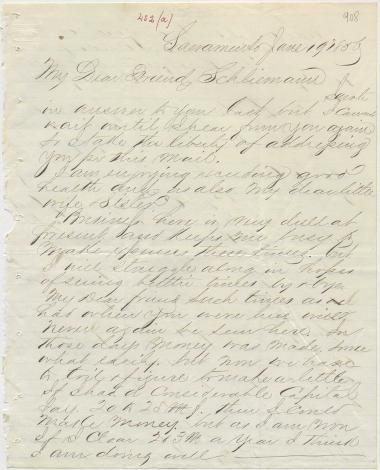 402 (a)
908
Sacramento June 19 1855
My Dear Friend Schliemann
I wrote
in answer to your last but I cannot
wait until I hear from you again
so I take the liberty of addressing
you pr this mail.
I am enjoying exceeding good
health and so is also my dear little
wife & Sister
Business here is very dull at
present and keeps me busy to
make expenses these times. but
I will struggle along in hopes
of seeing better times by & bye.
My Dear friend such times as
had when you were here will
never again be seen here. In
those days money was made some
what easy. but now we have
to toil & figure to make a little
If I had a considerable Capital
say 20 to 25 M $. then I could
make money. but as I am now
if I clear 2 & 3 M a year I think
I am doing well